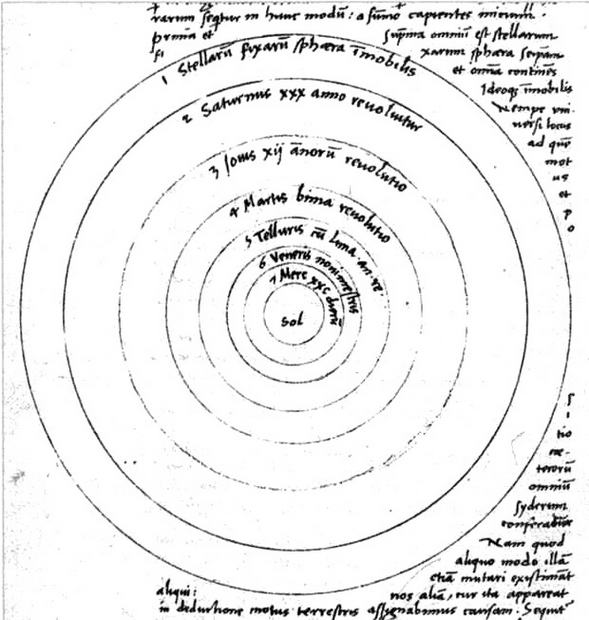 rarum seqtur in hunc modū: a sūmo capientes inicium.
prima et
suprema omniū est stellarum
fi
xarum sphæra seipsam
et omnia continēs
Ideoq; īmobilis
Nempe vni-
uersi locus
ad quē
mot
us
et
p
o
1 Stellarū fixarū sphæra īmobilis
2 Saturnus xxx anno reuoluitur
3 Jouis xij annorū reuolutio
4 Martis bima reuolutio
5 Telluris cū luna an. re.
6 Veneris nonimestris
7 Merc xxc dierū
Sol
S
i
tio
cæ-
terorū
omniū
syderum
conferatur
Nam quod
aliquo modo illā
etiā mutari existimāt
aliqui:
nos aliā, cur ita appareat
in deductione motus terrestris assignabimus causam. Sequit